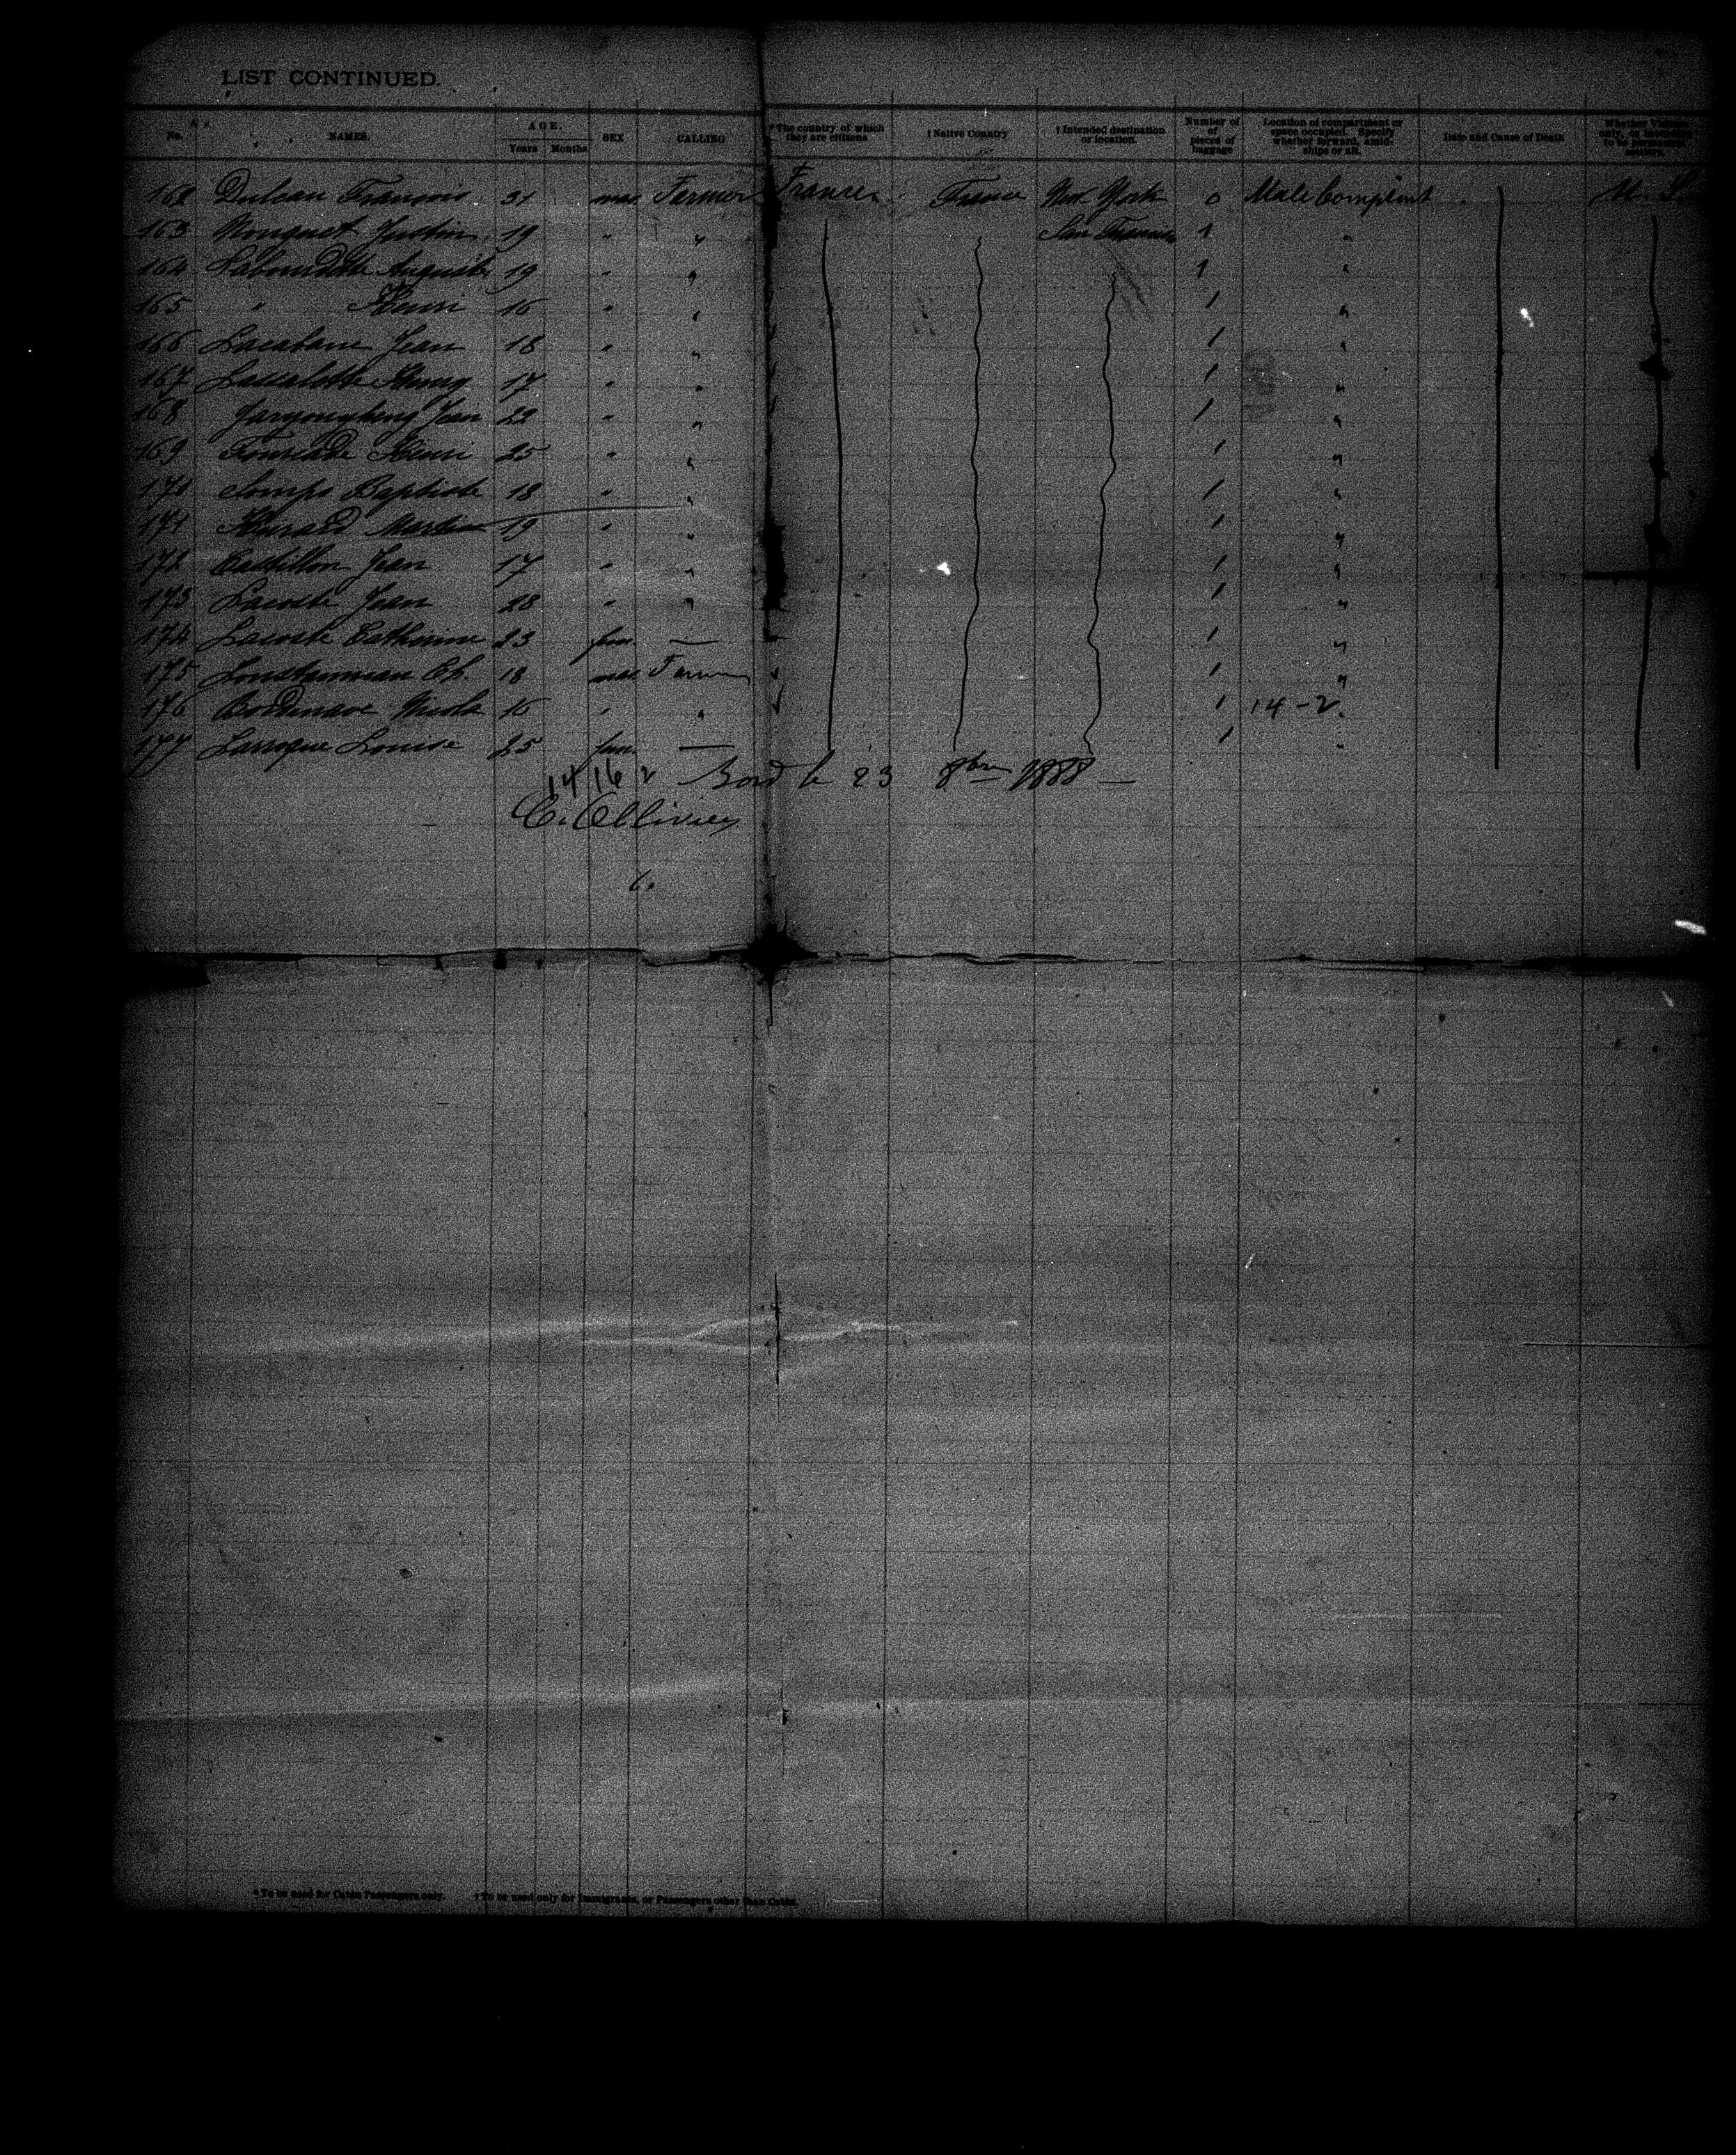 LIST CONTINUED.
No. NAMES. AGE. Years Months SEX CALLING * The country of which they are citizens † Native Country † Intended destination or location. Number of pieces of baggage Location of compartment or space occupied. Specify whether forward, amidships or aft. Date and Cause of Death
162 Francois 31 mas Farmer France France New York 0 Male Compimt
163 Mouquet Justin 19 " " San Francisco 1 "
164 Auguste 19 " " 1 "
165 " Henri 16 " " 1 "
166 Lacabane Jean 18 " " 1 "
167 Lassalotte Henry 17 " " 1 "
168 Jean 22 " " 1 "
169 Fourcade Henri 25 " " 1 "
170 Somps Baptiste 18 " " 1 "
171 19 " " 1 "
172 Castillon Jean 17 " " 1 "
173 Lacoste Jean 28 " " 1 "
174 Lacoste Catherine 23 fem. — 1 "
175 18 mas Farmer 1 "
176 Bordenave 16 " " 1 14-2.
177 Larroque Louise 25 fem. — 1 "
14 16 2 Bord le 23 8bre 1888 —
C. Ollivier
6.
* To be used for Cabin Passengers only. † To be used only for Immigrants, or Passengers other than Cabin.